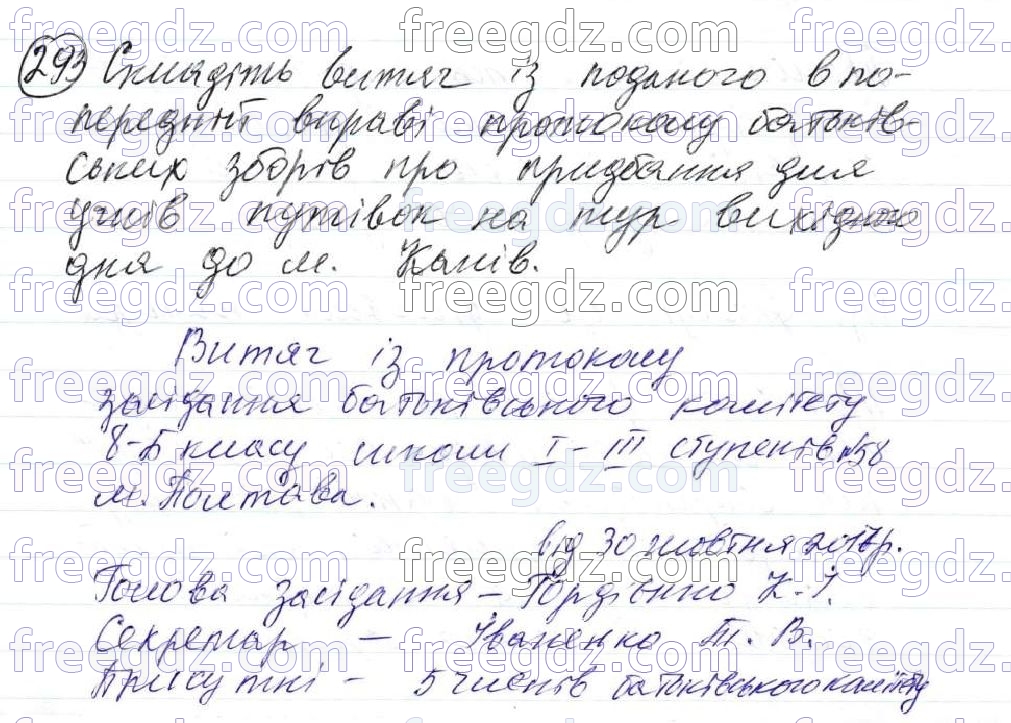 293 Складіть витяг із поданого в по-
передній вправі протоколу батьків-
ських зборів про придбання для
учнів путівок на тур вихідного
дня до м. Канів.
Витяг із протоколу
засідання батьківського комітету
8-Б класу школи I-III ступенів №58
м. Полтава.
від 30 жовтня 2017р.
Голова засідання – Гордієнко К. І.
Секретар – Іваненко Т. В.
Присутні – 5 членів батьківського комітету
freegdz.com